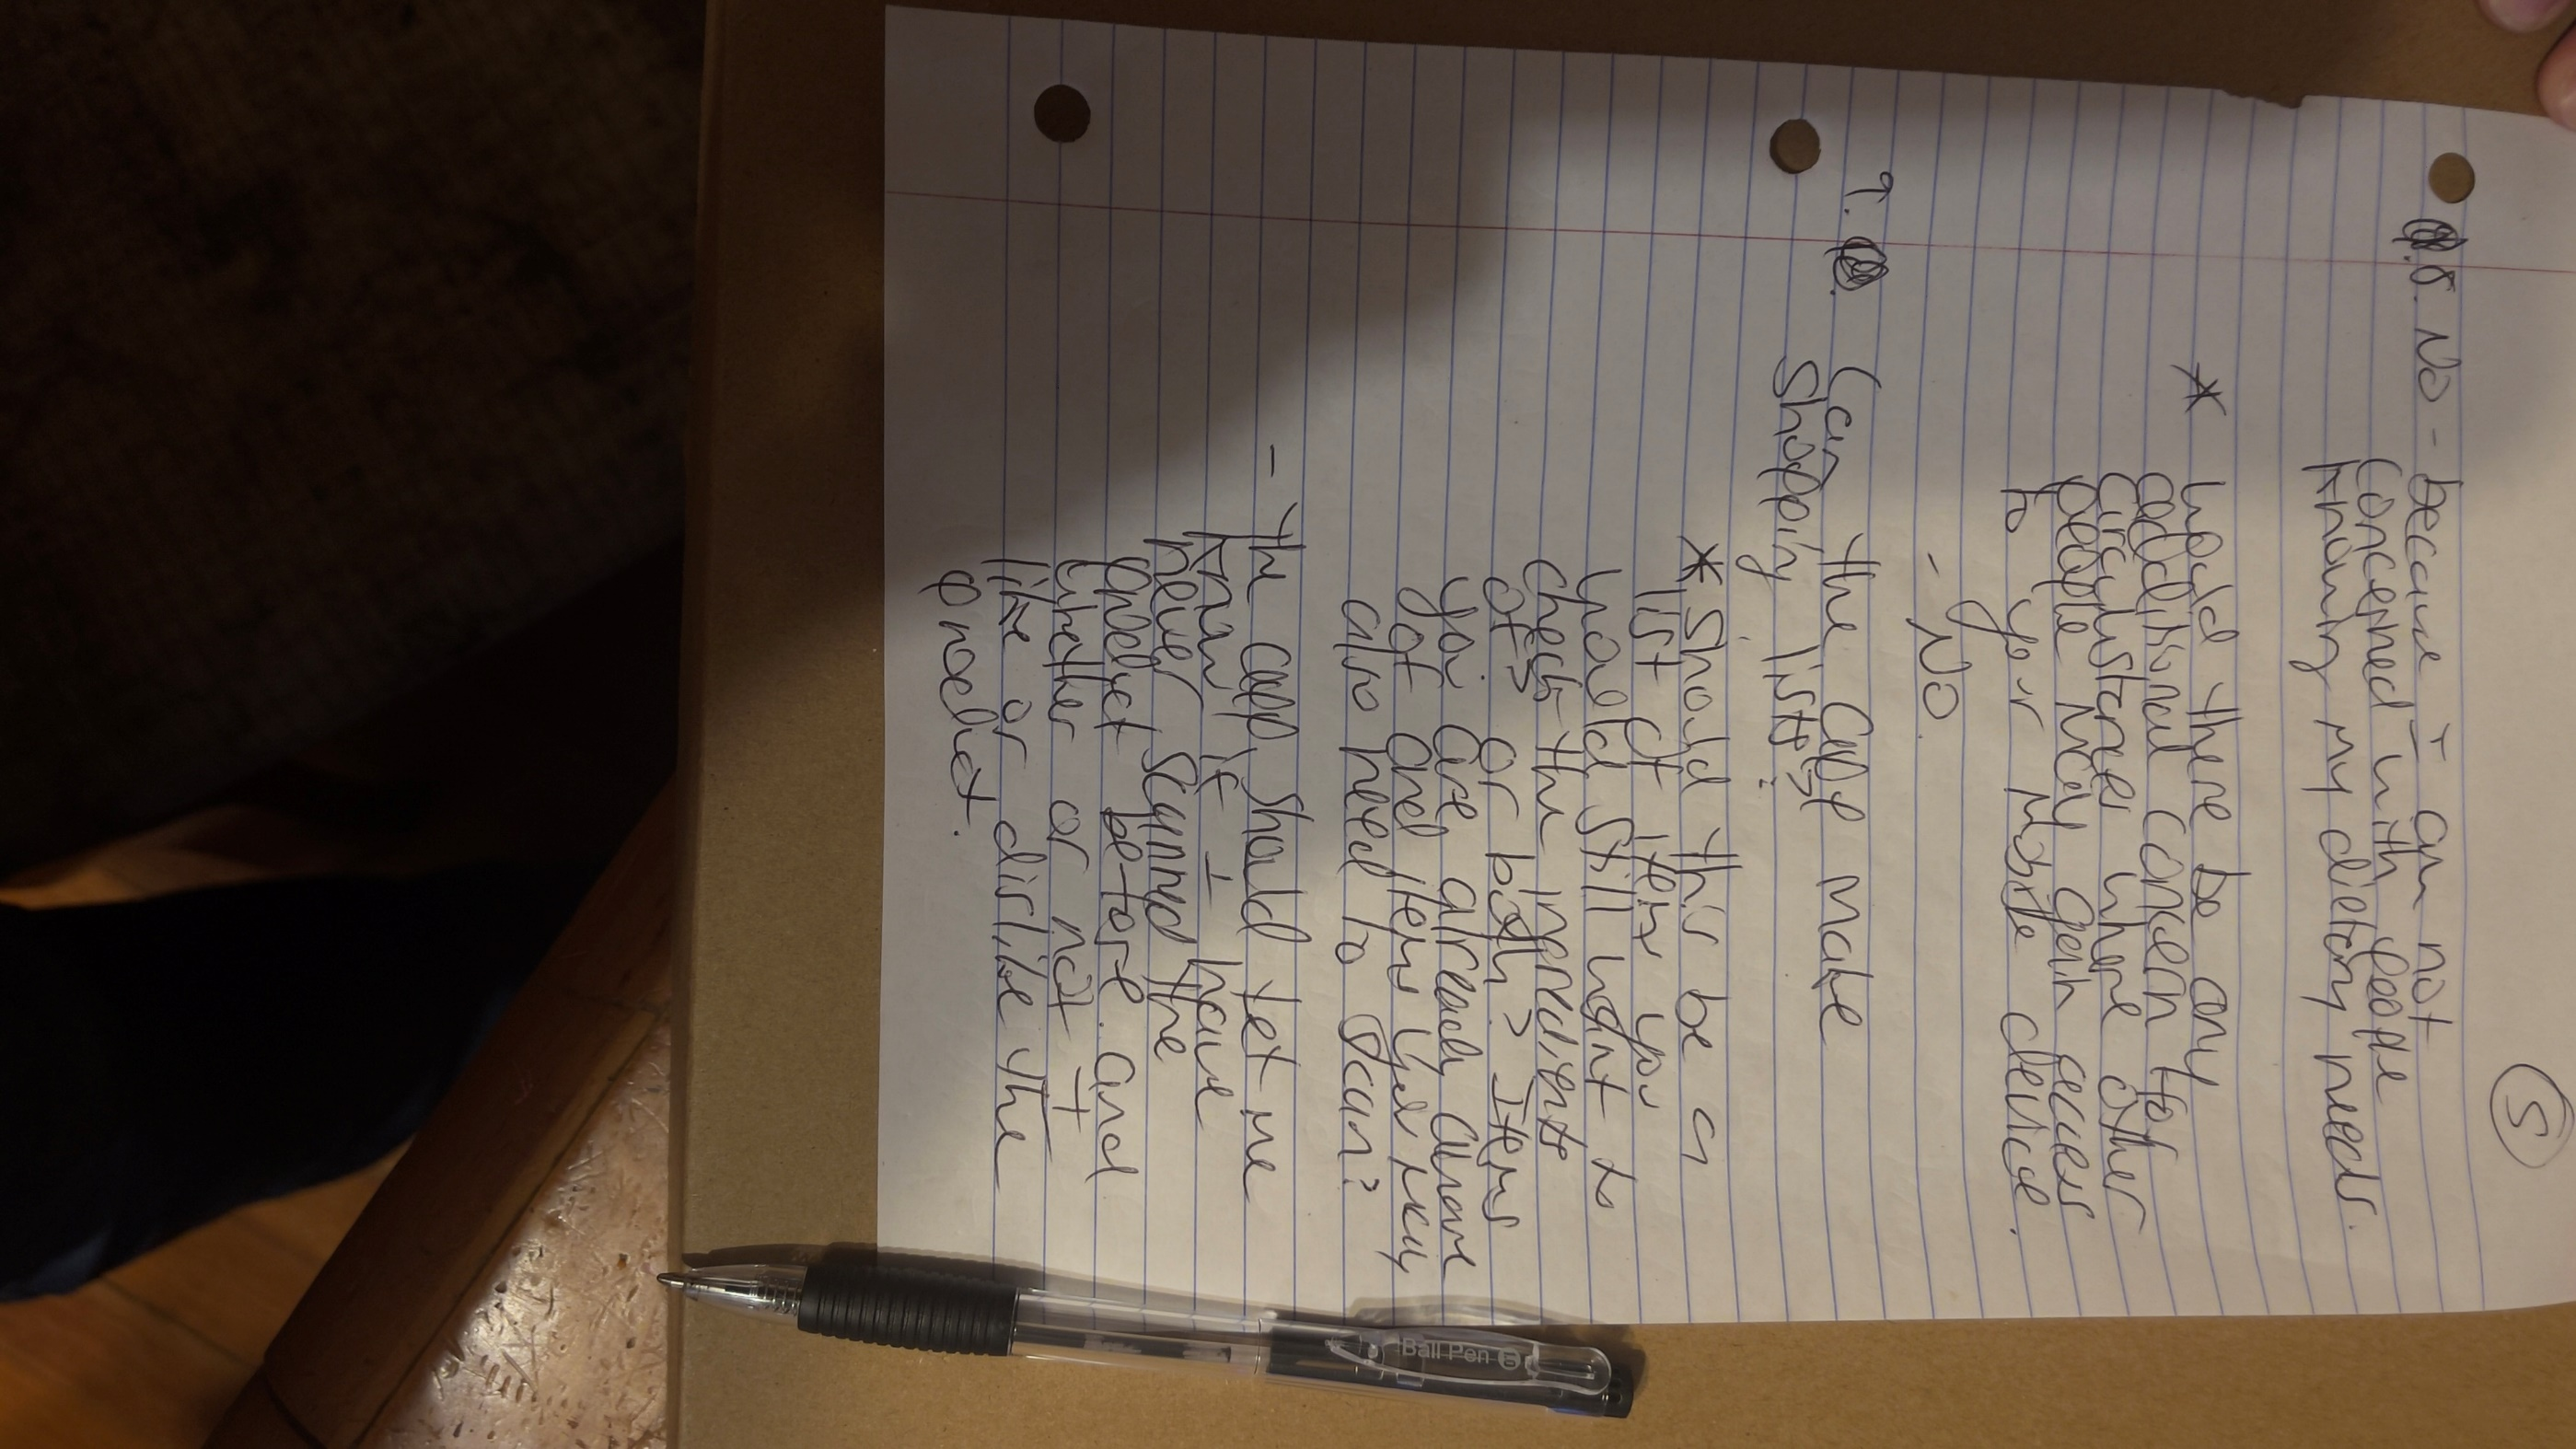 5
8. No - because I am not
concerned with people
knowing my dietary needs.
* Would there be any
additional concern for
circumstances where other
people may gain access
to your mobile device.
- No.
9. Can the app make
shopping lists?
* Should this be a
list of items you
would still want to
check the ingredients
of? Or both? Items
you are already aware
of and items you may
also need to scan?
- The app should let me
know if I have
never scanned the
product before and
whether or not I
like or dislike the
product.
Ball Pen